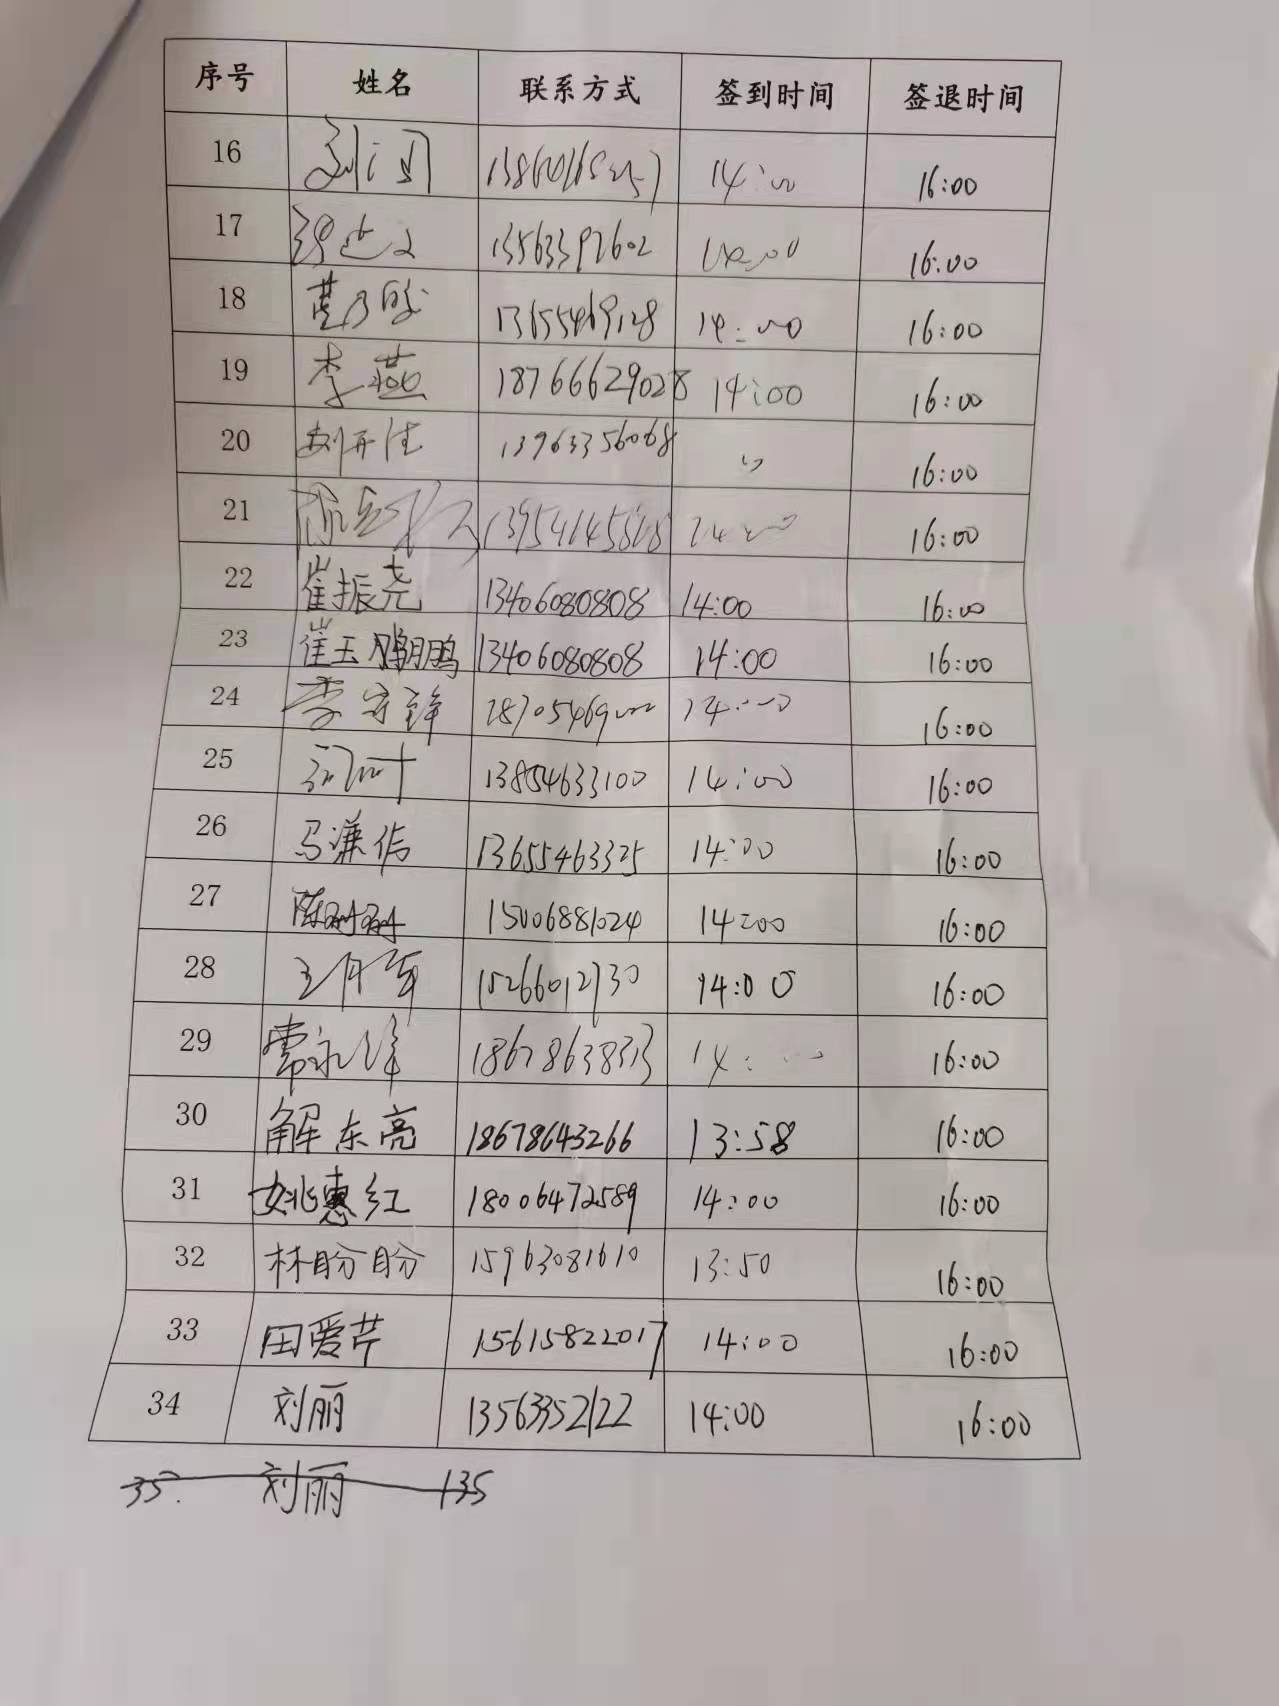 序号 姓名 联系方式 签到时间 签退时间
16 14:00 16:00
17 13563392602 14:00 16:00
18 13655469128 14:00 16:00
19 李燕 18766629028 14:00 16:00
20 13963356068 16:00
21 14:00 16:00
22 崔振尧 13406080808 14:00 16:00
23 崔玉鹏 13406080808 14:00 16:00
24 李守锋 14:00 16:00
25 13854633100 14:00 16:00
26 马谦信 13655463325 14:00 16:00
27 15006881024 14:00 16:00
28 15266012730 14:00 16:00
29 常永锋 18678638313 16:00
30 解东亮 18678643266 13:58 16:00
31 姚惠红 18006472589 14:00 16:00
32 林盼盼 15963081610 13:50 16:00
33 田爱芹 15615822017 14:00 16:00
34 刘丽 13563352122 14:00 16:00
35. 刘丽 135